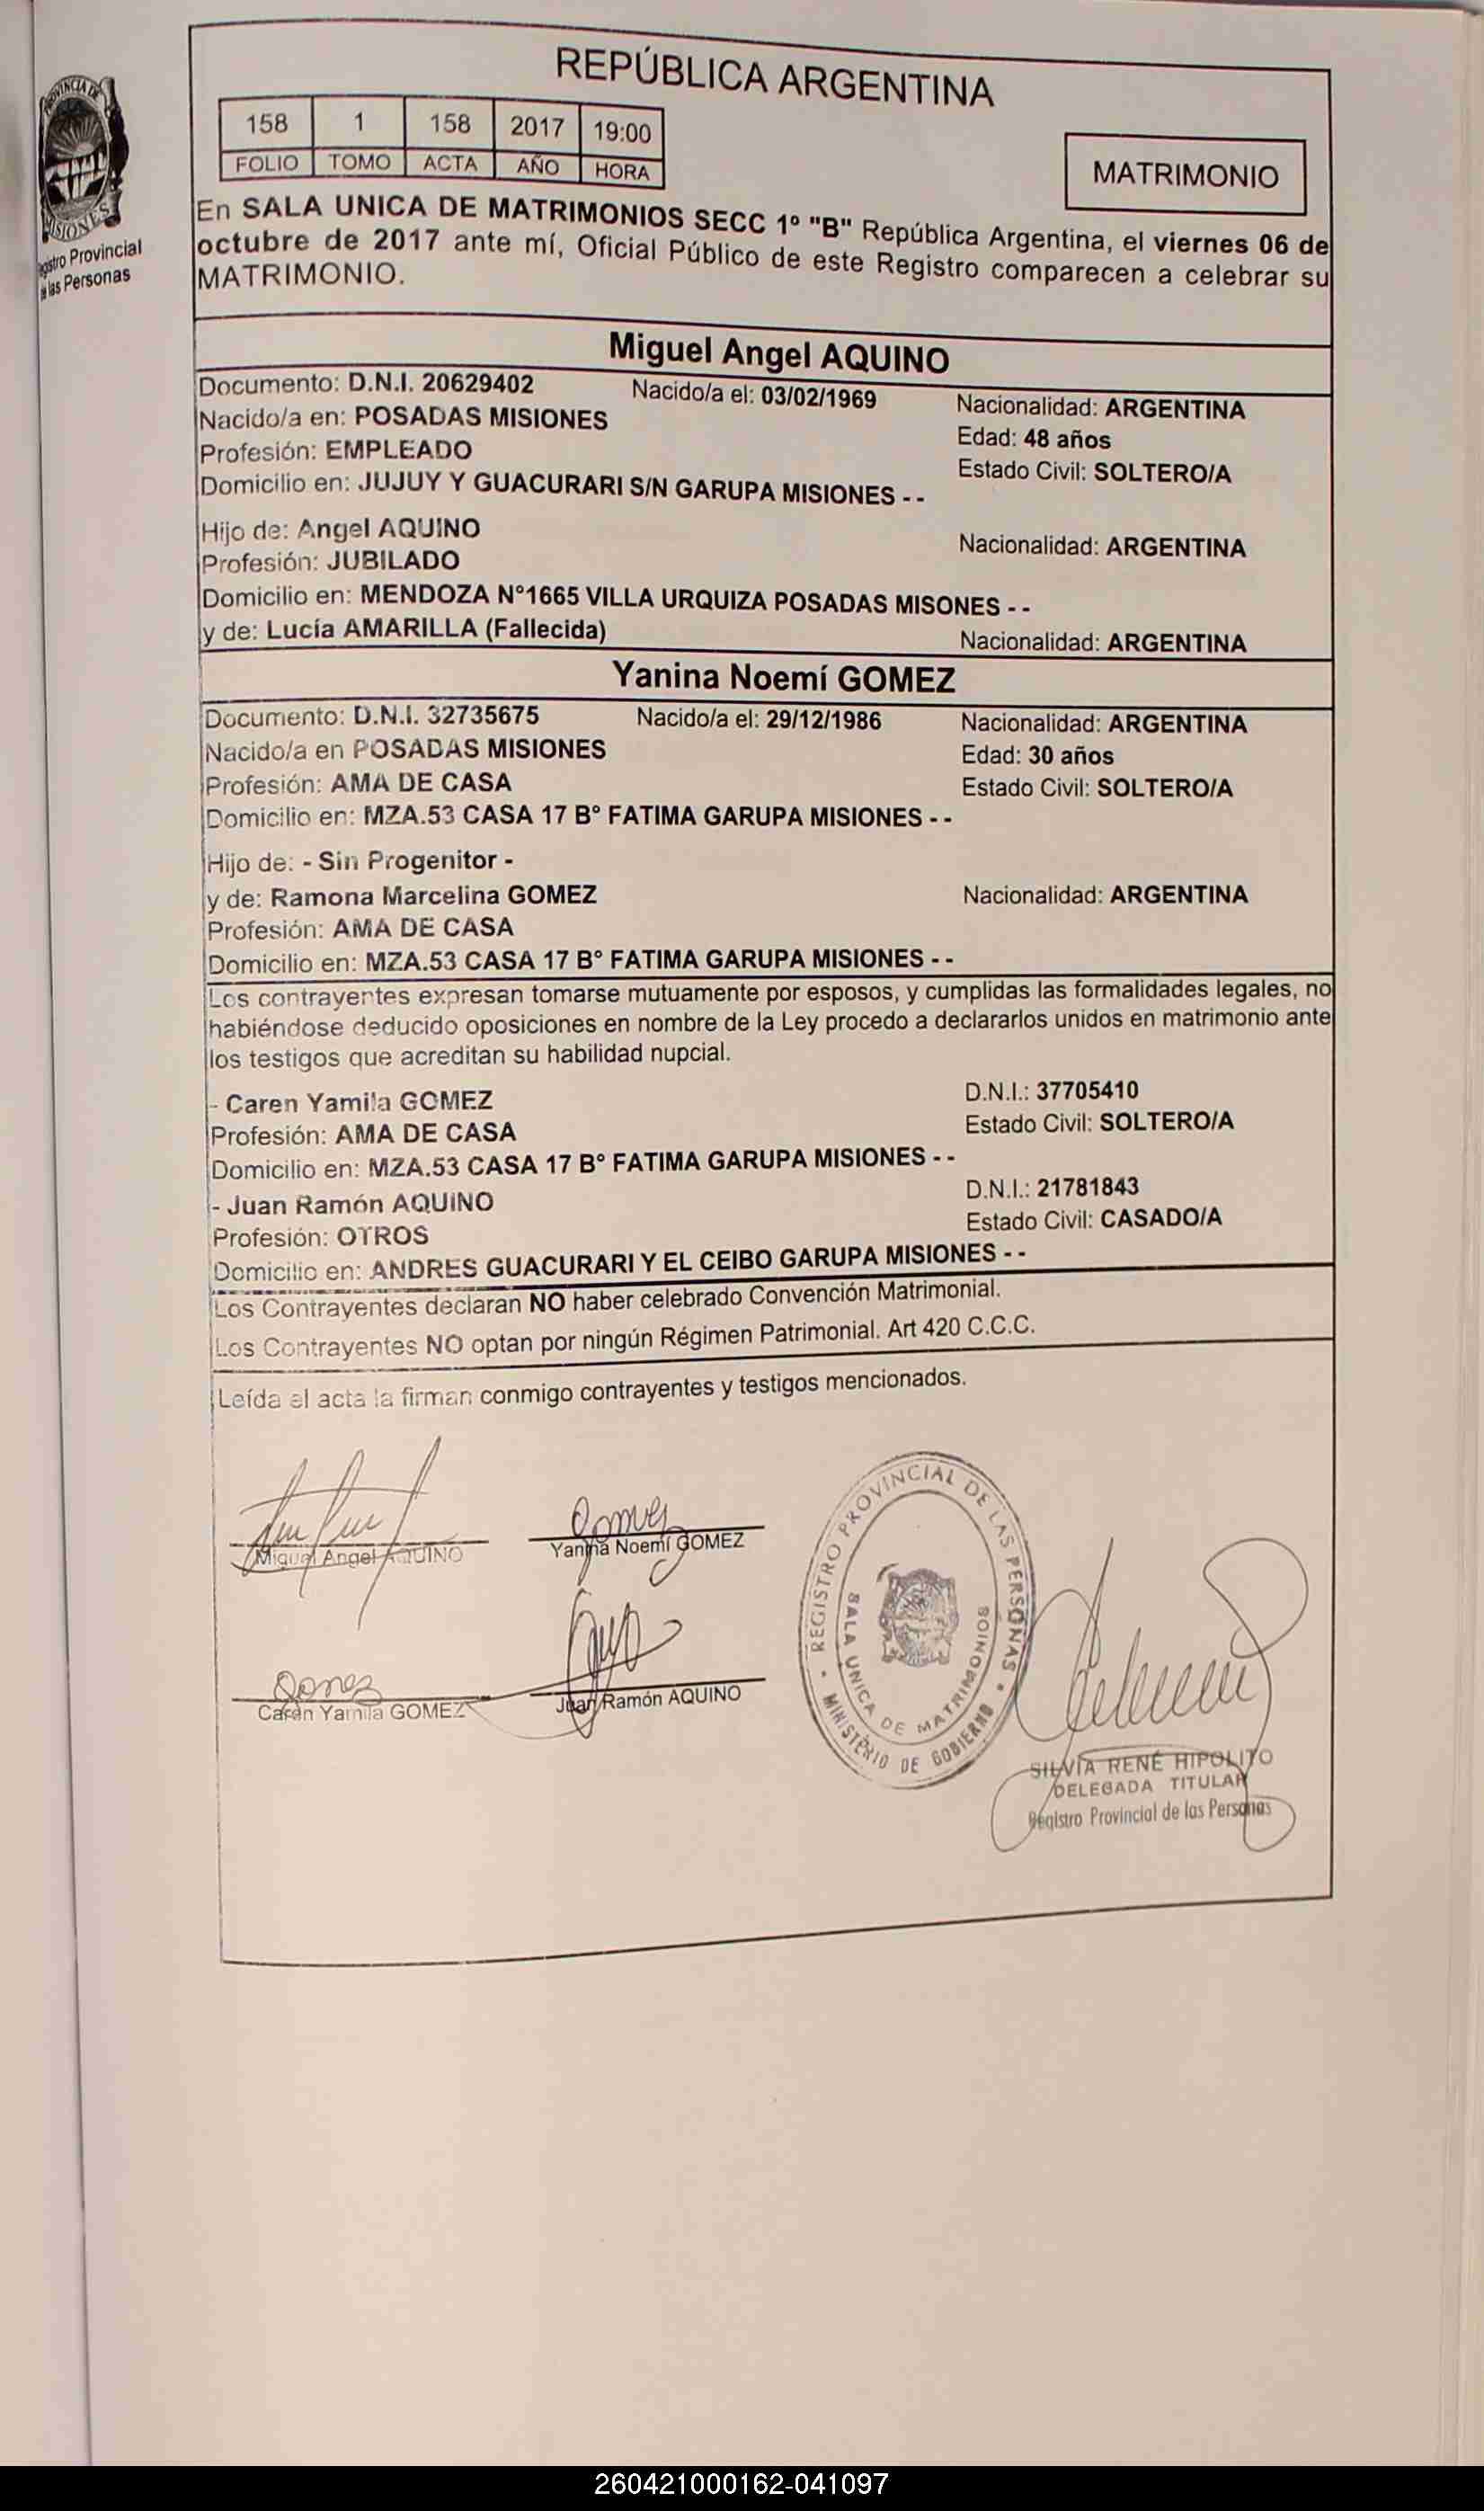 PROVINCIA DE
MISIONES
Registro Provincial
de las Personas
REPÚBLICA ARGENTINA
158 1 158 2017 19:00
FOLIO TOMO ACTA AÑO HORA
MATRIMONIO
En SALA UNICA DE MATRIMONIOS SECC 1º "B" República Argentina, el viernes 06 de
octubre de 2017 ante mí, Oficial Público de este Registro comparecen a celebrar su
MATRIMONIO.
Miguel Angel AQUINO
Documento: D.N.I. 20629402 Nacido/a el: 03/02/1969 Nacionalidad: ARGENTINA
Nacido/a en: POSADAS MISIONES Edad: 48 años
Profesión: EMPLEADO Estado Civil: SOLTERO/A
Domicilio en: JUJUY Y GUACURARI S/N GARUPA MISIONES - -
Hijo de: Angel AQUINO Nacionalidad: ARGENTINA
Profesión: JUBILADO
Domicilio en: MENDOZA N°1665 VILLA URQUIZA POSADAS MISONES - -
y de: Lucía AMARILLA (Fallecida) Nacionalidad: ARGENTINA
Yanina Noemí GOMEZ
Documento: D.N.I. 32735675 Nacido/a el: 29/12/1986 Nacionalidad: ARGENTINA
Nacido/a en POSADAS MISIONES Edad: 30 años
Profesión: AMA DE CASA Estado Civil: SOLTERO/A
Domicilio en: MZA.53 CASA 17 B° FATIMA GARUPA MISIONES - -
Hijo de: - Sin Progenitor -
y de: Ramona Marcelina GOMEZ Nacionalidad: ARGENTINA
Profesión: AMA DE CASA
Domicilio en: MZA.53 CASA 17 B° FATIMA GARUPA MISIONES - -
Los contrayentes expresan tomarse mutuamente por esposos, y cumplidas las formalidades legales, no
habiéndose deducido oposiciones en nombre de la Ley procedo a declararlos unidos en matrimonio ante
los testigos que acreditan su habilidad nupcial.
- Caren Yamila GOMEZ D.N.I.: 37705410
Profesión: AMA DE CASA Estado Civil: SOLTERO/A
Domicilio en: MZA.53 CASA 17 B° FATIMA GARUPA MISIONES - -
- Juan Ramón AQUINO D.N.I.: 21781843
Profesión: OTROS Estado Civil: CASADO/A
Domicilio en: ANDRES GUACURARI Y EL CEIBO GARUPA MISIONES - -
Los Contrayentes declaran NO haber celebrado Convención Matrimonial.
Los Contrayentes NO optan por ningún Régimen Patrimonial. Art 420 C.C.C.
Leída el acta la firman conmigo contrayentes y testigos mencionados.
Gomez
Miguel Angel AQUINO Yanina Noemí GOMEZ
Gomez
Caren Yamila GOMEZ Juan Ramón AQUINO
REGISTRO PROVINCIAL DE LAS PERSONAS
SALA UNICA DE MATRIMONIOS
MINISTERIO DE GOBIERNO
SILVIA RENÉ HIPOLITO
DELEGADA TITULAR
Registro Provincial de las Personas
260421000162-041097